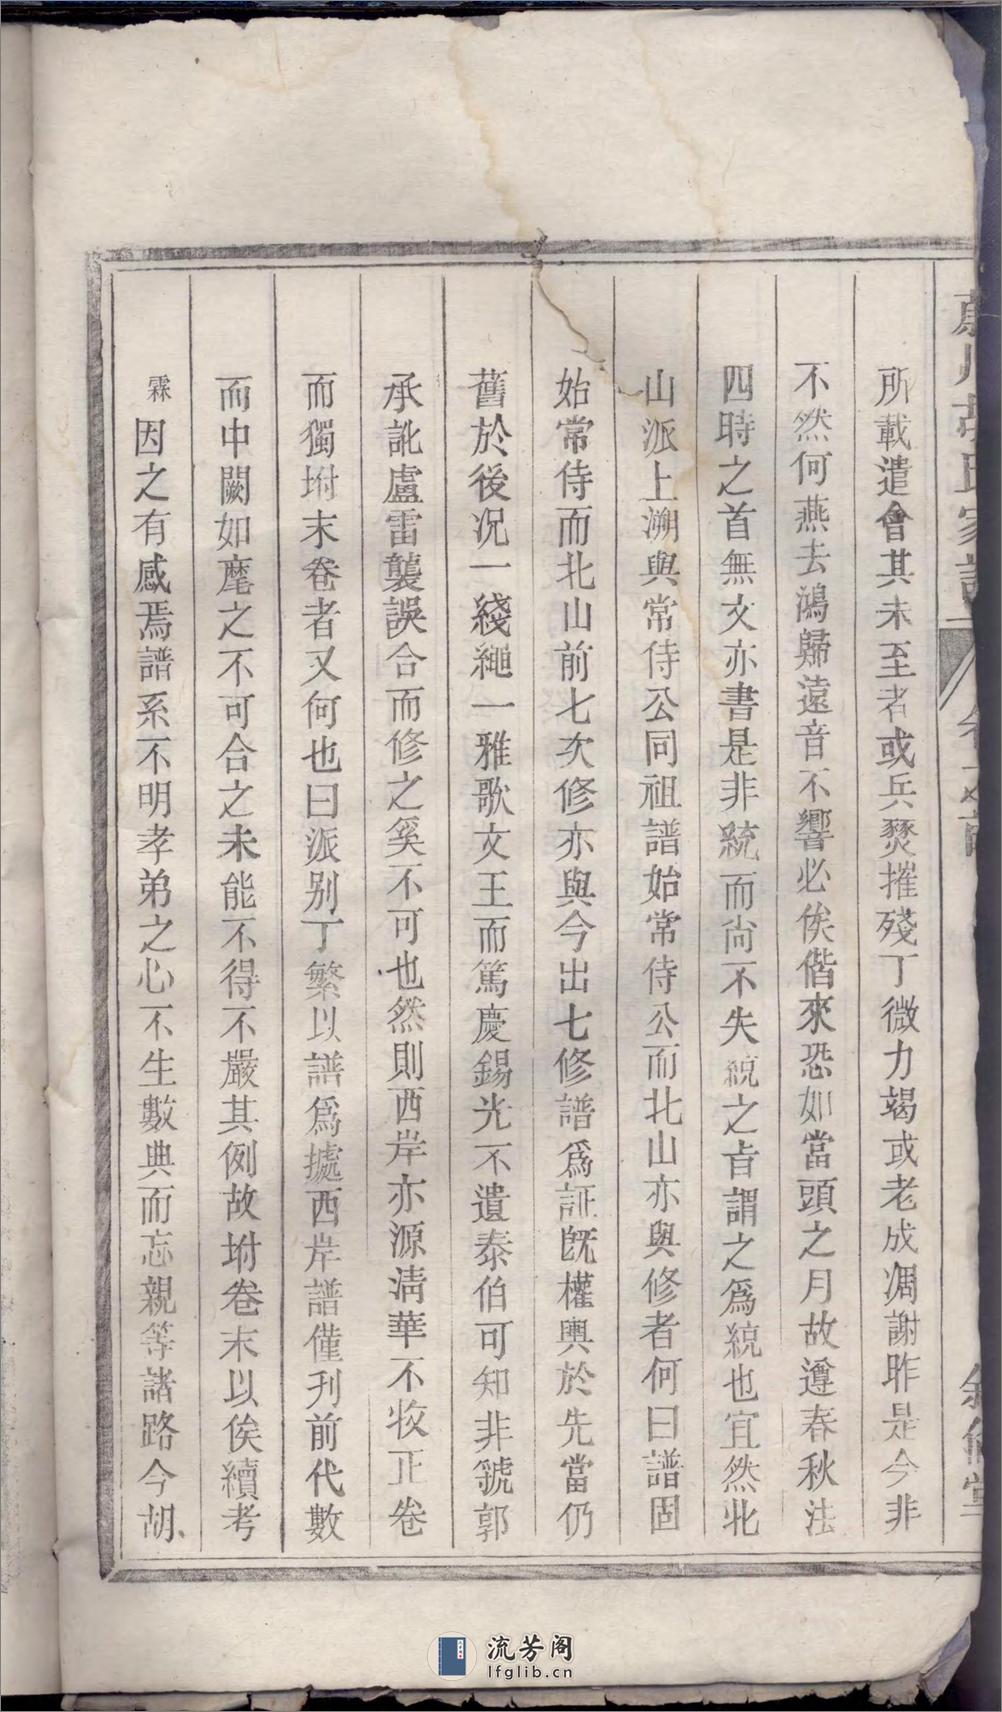 胡氏家譜
所載遣會其未至者或兵燹摧殘丁微力竭或老成凋謝昨是今非
不然何燕去鴻歸遠音不響必俟偕來恐如當頭之月故遵春秋法
四時之首無文亦書是非統而尙不失統之旨謂之爲統也宜然北
山派上溯與常侍公同祖譜始常侍公而北山亦與修者何曰譜固
始常侍而北山前七次修亦與今出七修譜爲証旣權輿於先當仍
舊於後况一綫繩一雅歌文王而篤慶錫光不遺泰伯可知非虢郭
承訛盧雷襲誤合而修之奚不可也然則西岸亦源淸華不收正卷
而獨坿末卷者又何也曰派别丁繁以譜爲據西岸譜僅刋前代數
而中闕如麾之不可合之未能不得不嚴其例故坿卷末以俟續考
霖因之有感焉譜系不明孝弟之心不生數典而忘親等諸路今胡
流芳阁
lfglib.cn